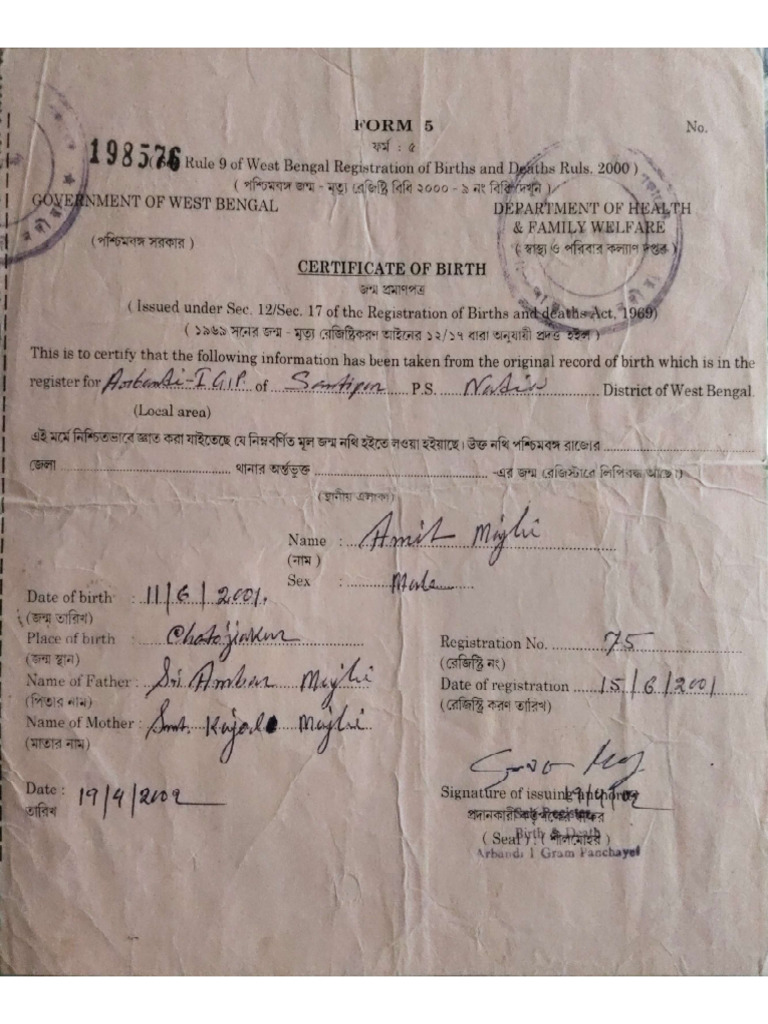 FORM 5
No.
ফর্ম : ৫
198576
Rule 9 of West Bengal Registration of Births and Deaths Ruls. 2000 )
( পশ্চিমবঙ্গ জন্ম - মৃত্যু রেজিষ্ট্রি বিধি ২০০০ - ৯ নং বিধি দেখুন )
GOVERNMENT OF WEST BENGAL
DEPARTMENT OF HEALTH
& FAMILY WELFARE
(পশ্চিমবঙ্গ সরকার )
( স্বাস্থ্য ও পরিবার কল্যাণ দপ্তর )
CERTIFICATE OF BIRTH
জন্ম প্রমাণপত্র
( Issued under Sec. 12/Sec. 17 of the Registration of Births and deaths Act, 1969)
( ১৯৬৯ সনের জন্ম - মৃত্যু রেজিষ্ট্রিকরণ আইনের ১২/১৭ ধারা অনুযায়ী প্রদত্ত হইল )
This is to certify that the following information has been taken from the original record of birth which is in the
register for Arbandi-I G.P. of Santipur P.S. Nadia District of West Bengal
(Local area)
এই মর্মে নিশ্চিতভাবে জ্ঞাত করা যাইতেছে যে নিম্নবর্ণিত মূল জন্ম নথি হইতে লওয়া হইয়াছে। উক্ত নথি পশ্চিমবঙ্গ রাজ্যের
জেলা থানার অর্ন্তভুক্ত -এর জন্ম রেজিস্টারে লিপিবদ্ধ আছে।)
(স্থানীয় এলাকা)
Name : Amit Majhi
(নাম )
Sex : Male
Date of birth : 11/6/2001.
(জন্ম তারিখ)
Place of birth :
(জন্ম স্থান)
Registration No. 75
(রেজিষ্ট্রি নং)
Name of Father : Sri Ambar Majhi
(পিতার নাম)
Date of registration 15/6/2001
(রেজিষ্ট্রি করণ তারিখ)
Name of Mother : Smt. Kajal Majhi
(মাতার নাম)
Date : 19/4/2002
তারিখ
Signature of issuing
( Seal )
Birth & Death
Arbandi I Gram Panchayet